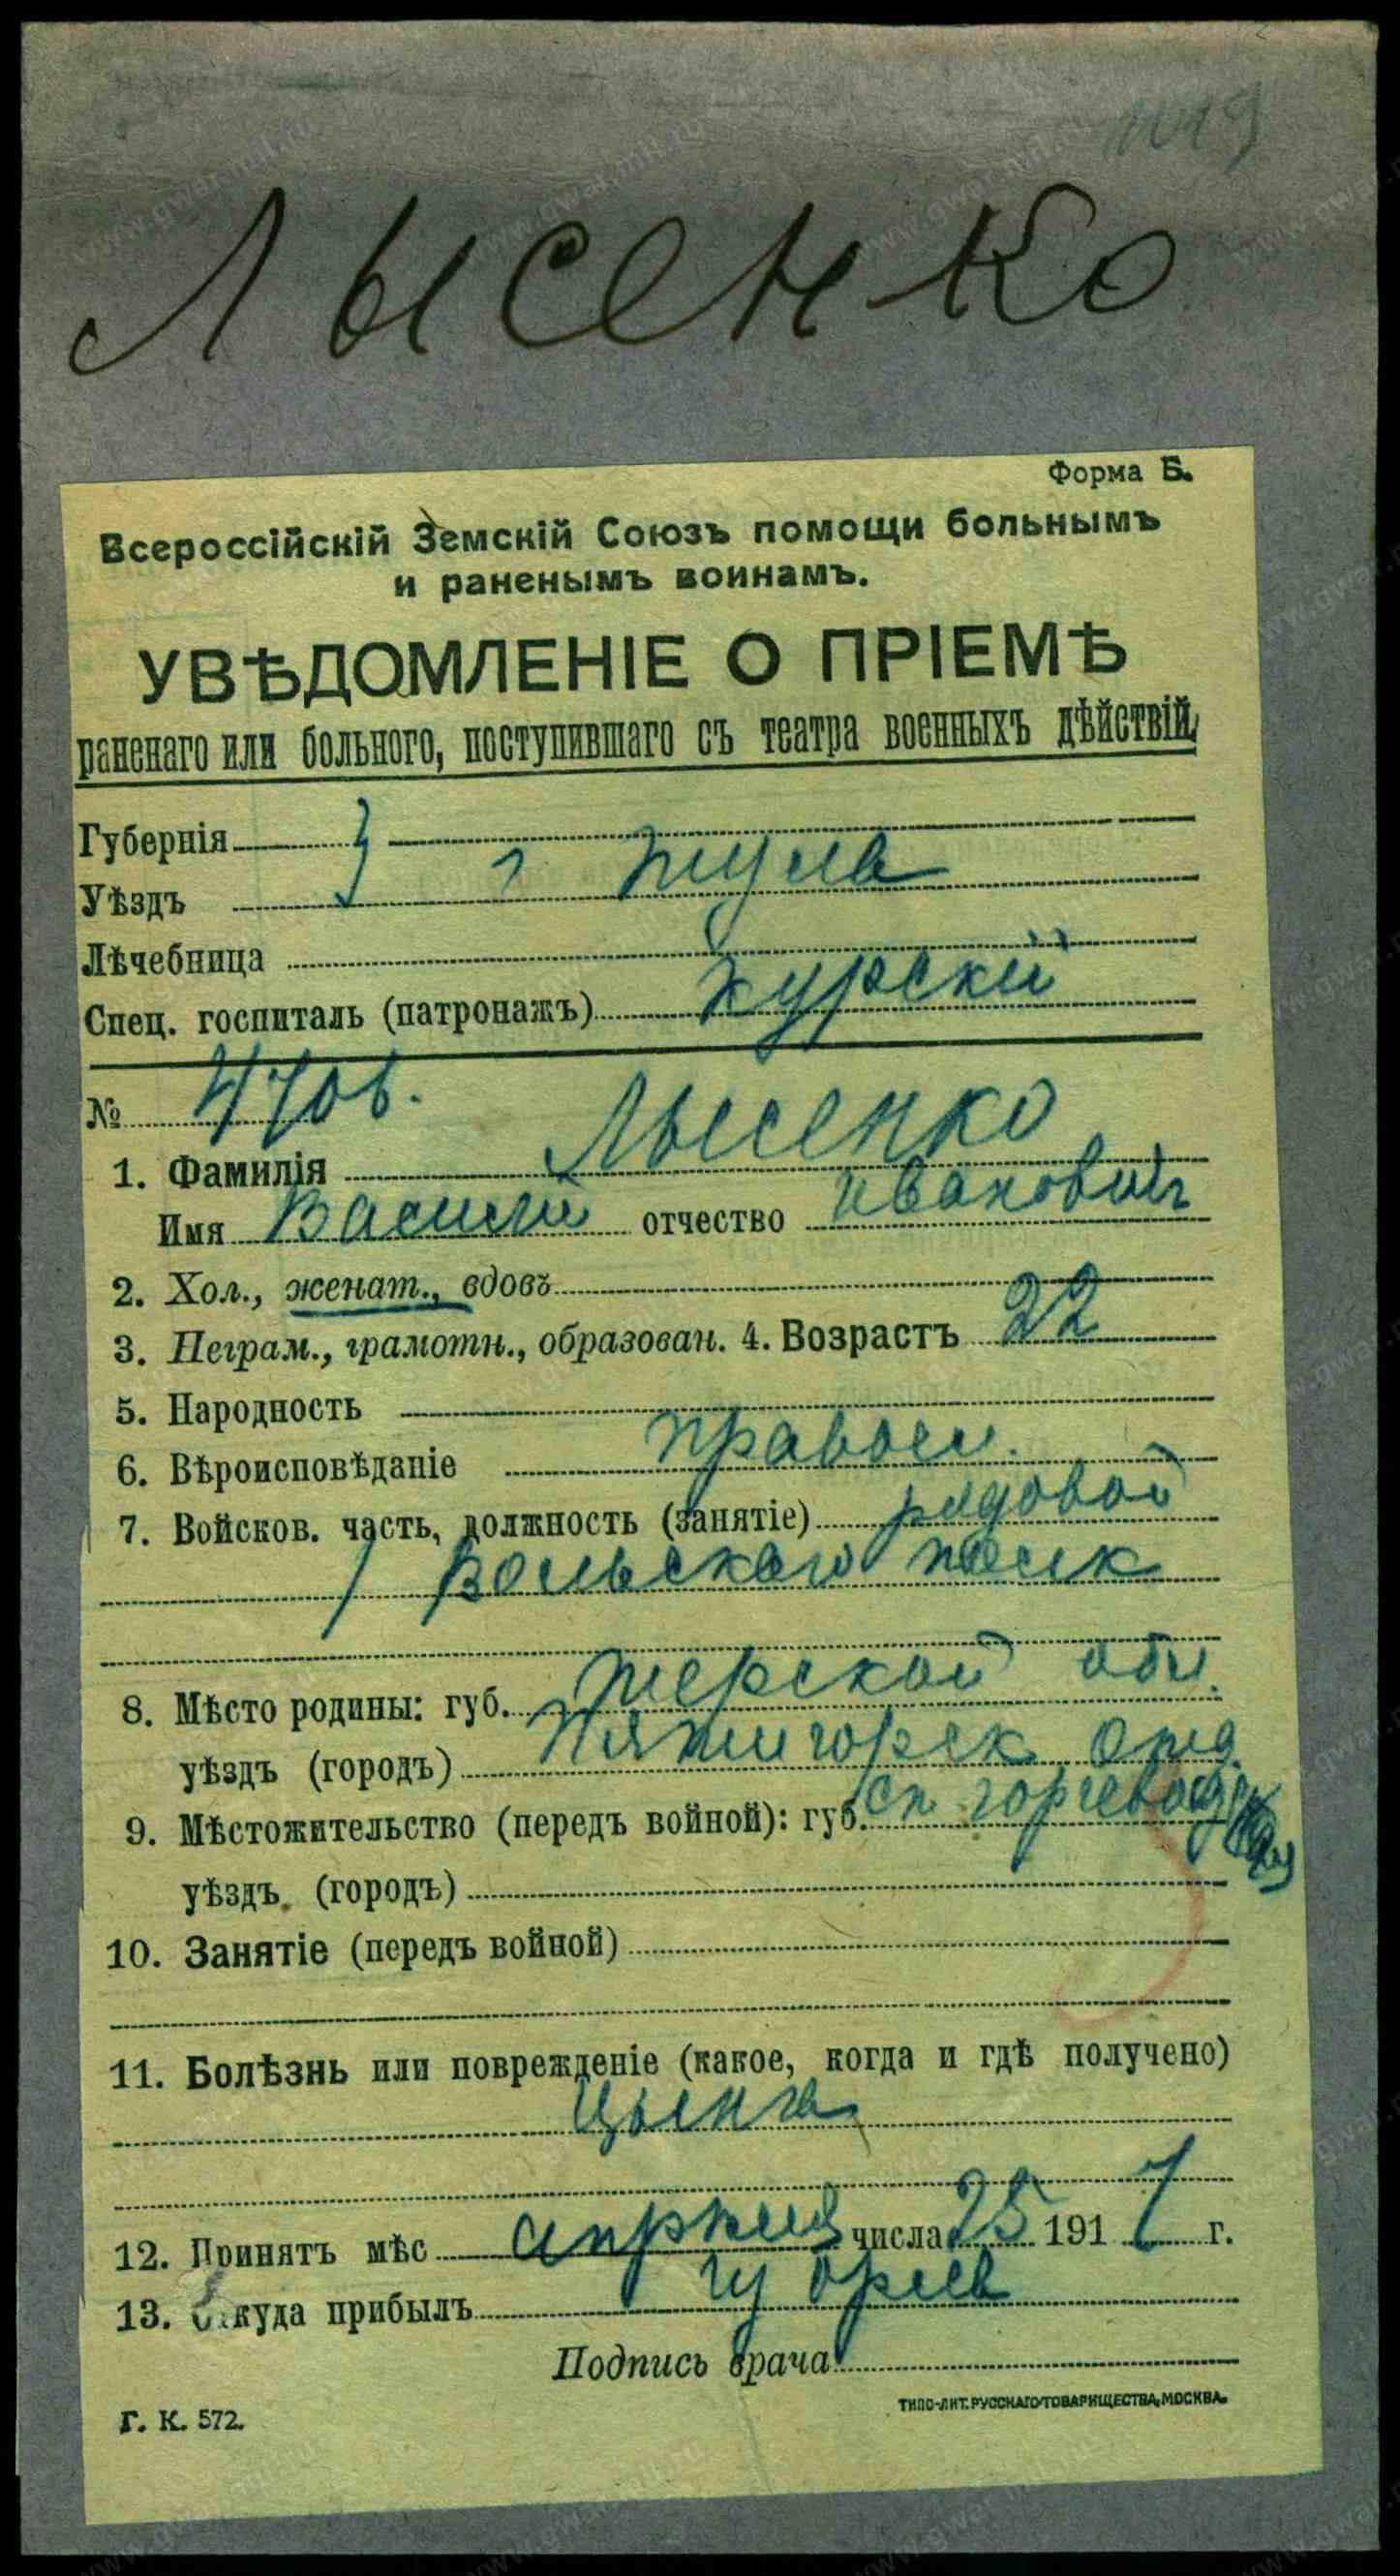 1019
Лысенко
Форма Б.
Всероссійскій Земскій Союзъ помощи больнымъ
и раненымъ воинамъ.
УВѢДОМЛЕНІЕ О ПРІЕМѢ
раненаго или больного, поступившаго съ театра военныхъ дѣйствій.
Губернія
Уѣздъ г Тула
Лѣчебница
Спец. госпиталь (патронажъ) Курский
№
1. Фамилія Лысенко
Имя Василий отчество Иванович
2. Хол., женат., вдовъ
3. Неграм., грамотн., образован. 4. Возрастъ 22
5. Народность
6. Вѣроисповѣданіе правосл.
7. Войсков. часть, должность (занятіе) рядовой
Вольскаго полк
8. Мѣсто родины: губ. Терской обл.
уѣздъ (городъ) Пятигорск отд.
9. Мѣстожительство (передъ войной): губ.
уѣздъ. (городъ)
10. Занятіе (передъ войной)
11. Болѣзнь или поврежденіе (какое, когда и гдѣ получено)
Цынга
12. Принятъ мѣс апреля числа 25 1917 г.
13. Откуда прибылъ
Подпись врача
Г. К. 572.
ТИПО-ЛИТ. РУССКАГО ТОВАРИЩЕСТВА, МОСКВА.